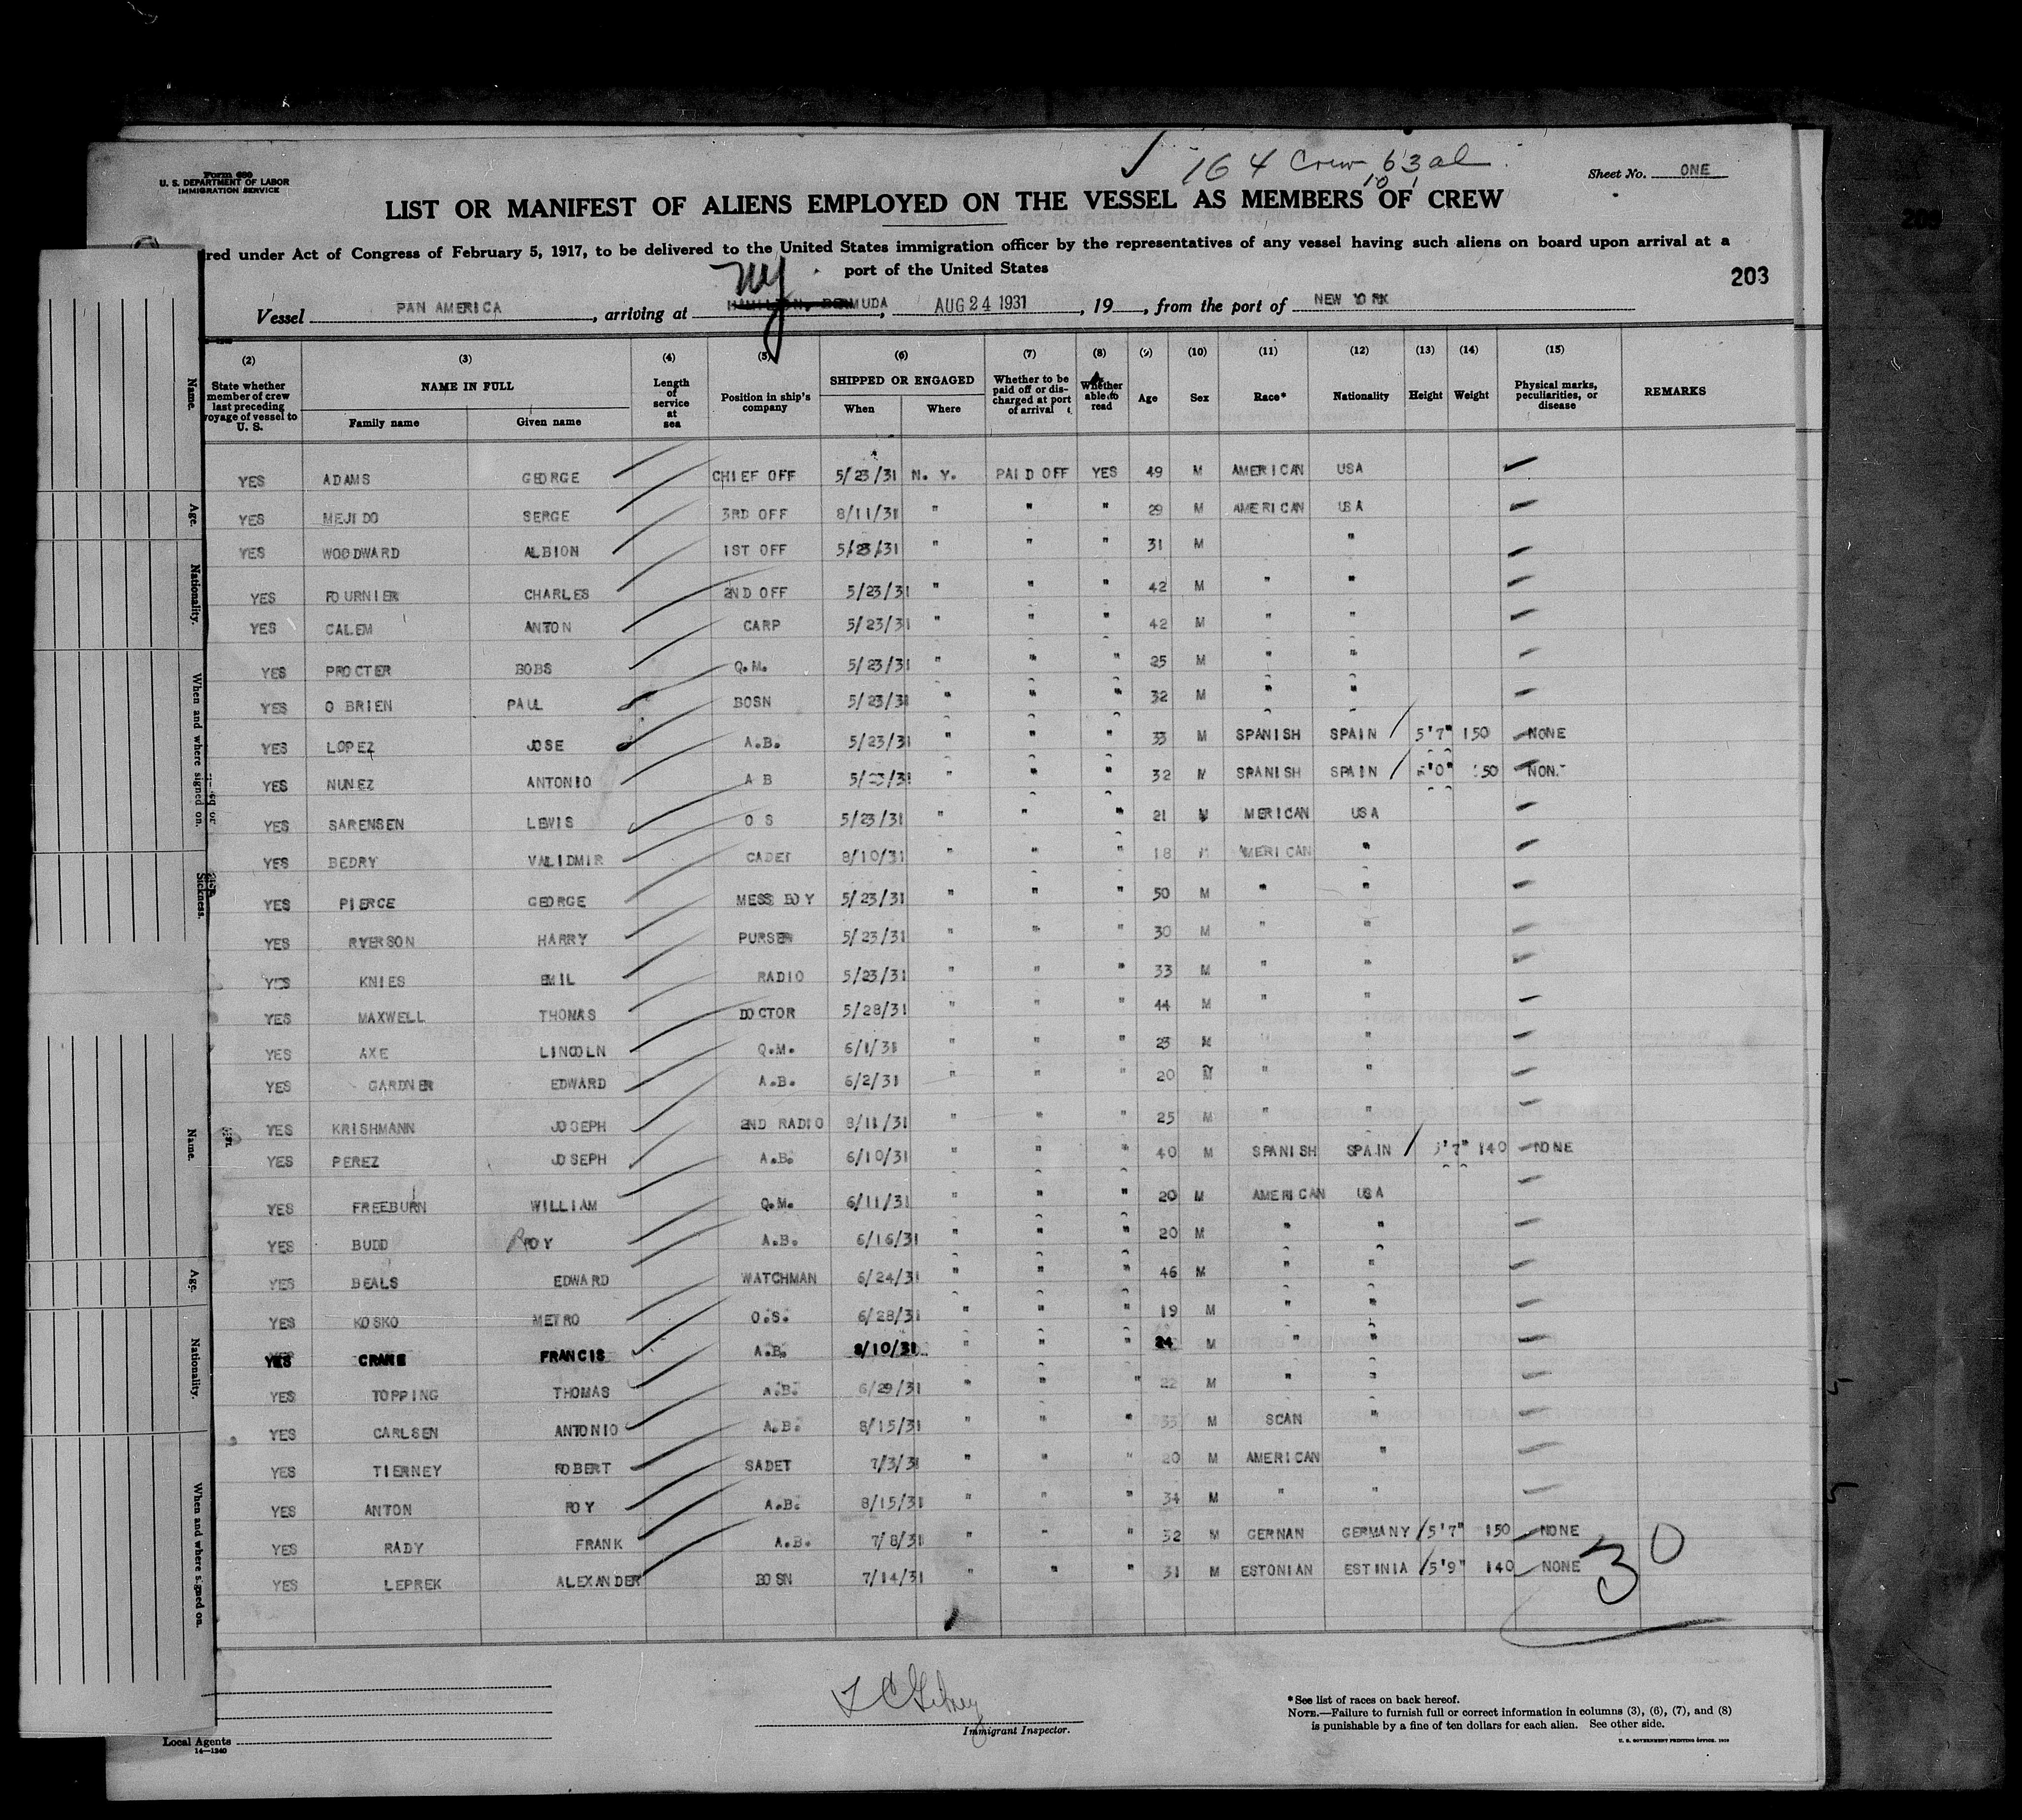 ✓ 164 Crew 63 al
10 1
Form 680
U. S. DEPARTMENT OF LABOR
IMMIGRATION SERVICE
Sheet No. ONE
LIST OR MANIFEST OF ALIENS EMPLOYED ON THE VESSEL AS MEMBERS OF CREW
red under Act of Congress of February 5, 1917, to be delivered to the United States immigration officer by the representatives of any vessel having such aliens on board upon arrival at a
port of the United States
203
NY
Vessel PAN AMERICA, arriving at HAMILTON, BERMUDA, AUG 24 1931, 19, from the port of NEW YORK
(2) (3) (4) (5) (6) (7) (8) (9) (10) (11) (12) (13) (14) (15)
State whether member of crew last preceding voyage of vessel to U. S. NAME IN FULL Family name Given name Length of service at sea Position in ship's company SHIPPED OR ENGAGED When Where Whether to be paid off or discharged at port of arrival Whether able to read Age Sex Race* Nationality Height Weight Physical marks, peculiarities, or disease REMARKS
YES ADAMS GEORGE CHIEF OFF 5/23/31 N. Y. PAID OFF YES 49 M AMERICAN USA
YES MEJIDO SERGE 3RD OFF 8/11/31 " " " 29 M AMERICAN USA
YES WOODWARD ALBION 1ST OFF 5/23/31 " " " 31 M "
YES FOURNIER CHARLES 2ND OFF 5/23/31 " " " 42 M " "
YES CALEM ANTON CARP 5/23/31 " " " 42 M " "
YES PROCTER BOBS Q.M. 5/23/31 " " " 25 M " "
YES O BRIEN PAUL BOSN 5/23/31 " " " 32 M " "
YES LOPEZ JOSE A.B. 5/23/31 " " " 33 M SPANISH SPAIN / 5'7" 150 NONE
YES NUNEZ ANTONIO A B 5/23/31 " " " 32 M SPANISH SPAIN / '0" 150 NON.
YES SARENSEN LEWIS O S 5/23/31 " " " 21 M MERICAN USA
YES BEDRY VALIDMIR CADET 8/10/31 " " " 18 M AMERICAN "
YES PIERCE GEORGE MESS BOY 5/23/31 " " " 50 M " "
YES RYERSON HARRY PURSER 5/23/31 " " " 30 M " "
YES KNIES EMIL RADIO 5/23/31 " " " 33 M " "
YES MAXWELL THOMAS DOCTOR 5/28/31 " " " 44 M " "
YES AXE LINCOLN Q.M. 6/1/31 " " " 23 M " "
YES GARDNER EDWARD A.B. 6/2/31 " " " 20 M " "
YES KRISHMANN JOSEPH 2ND RADIO 8/11/31 " " " 25 M " "
YES PEREZ JOSEPH A.B. 6/10/31 " " " 40 M SPANISH SPAIN / 5'7" 140 NONE
YES FREEBURN WILLIAM Q.M. 6/11/31 " " " 20 M AMERICAN USA
YES BUDD ROY A.B. 6/16/31 " " " 20 M " "
YES BEALS EDWARD WATCHMAN 6/24/31 " " " 46 M " "
YES KOSKO METRO O.S. 6/28/31 " " " 19 M " "
YES CRANE FRANCIS A.B. 8/10/31 " " " 24 M " "
YES TOPPING THOMAS A.B. 6/29/31 " " " 22 M " "
YES CARLSEN ANTONIO A.B. 8/15/31 " " " 33 M SCAN "
YES TIERNEY ROBERT SADET 7/3/31 " " " 20 M AMERICAN "
YES ANTON ROY A.B. 8/15/31 " " " 34 M " "
YES RADY FRANK A.B. 7/8/31 " " " 32 M GERNAN GERMANY / 5'7" 150 NONE
YES LEPREK ALEXANDER BOSN 7/14/31 " " " 31 M ESTONIAN ESTINIA / 5'9" 140 NONE
30
Immigrant Inspector.
*See list of races on back hereof.
NOTE.—Failure to furnish full or correct information in columns (3), (6), (7), and (8)
is punishable by a fine of ten dollars for each alien. See other side.
U. S. GOVERNMENT PRINTING OFFICE. 1930
Local Agents
14—1240
Name.
Age.
Nationality.
When and where signed on.
Sickness.
Name.
Age.
Nationality.
When and where signed on.